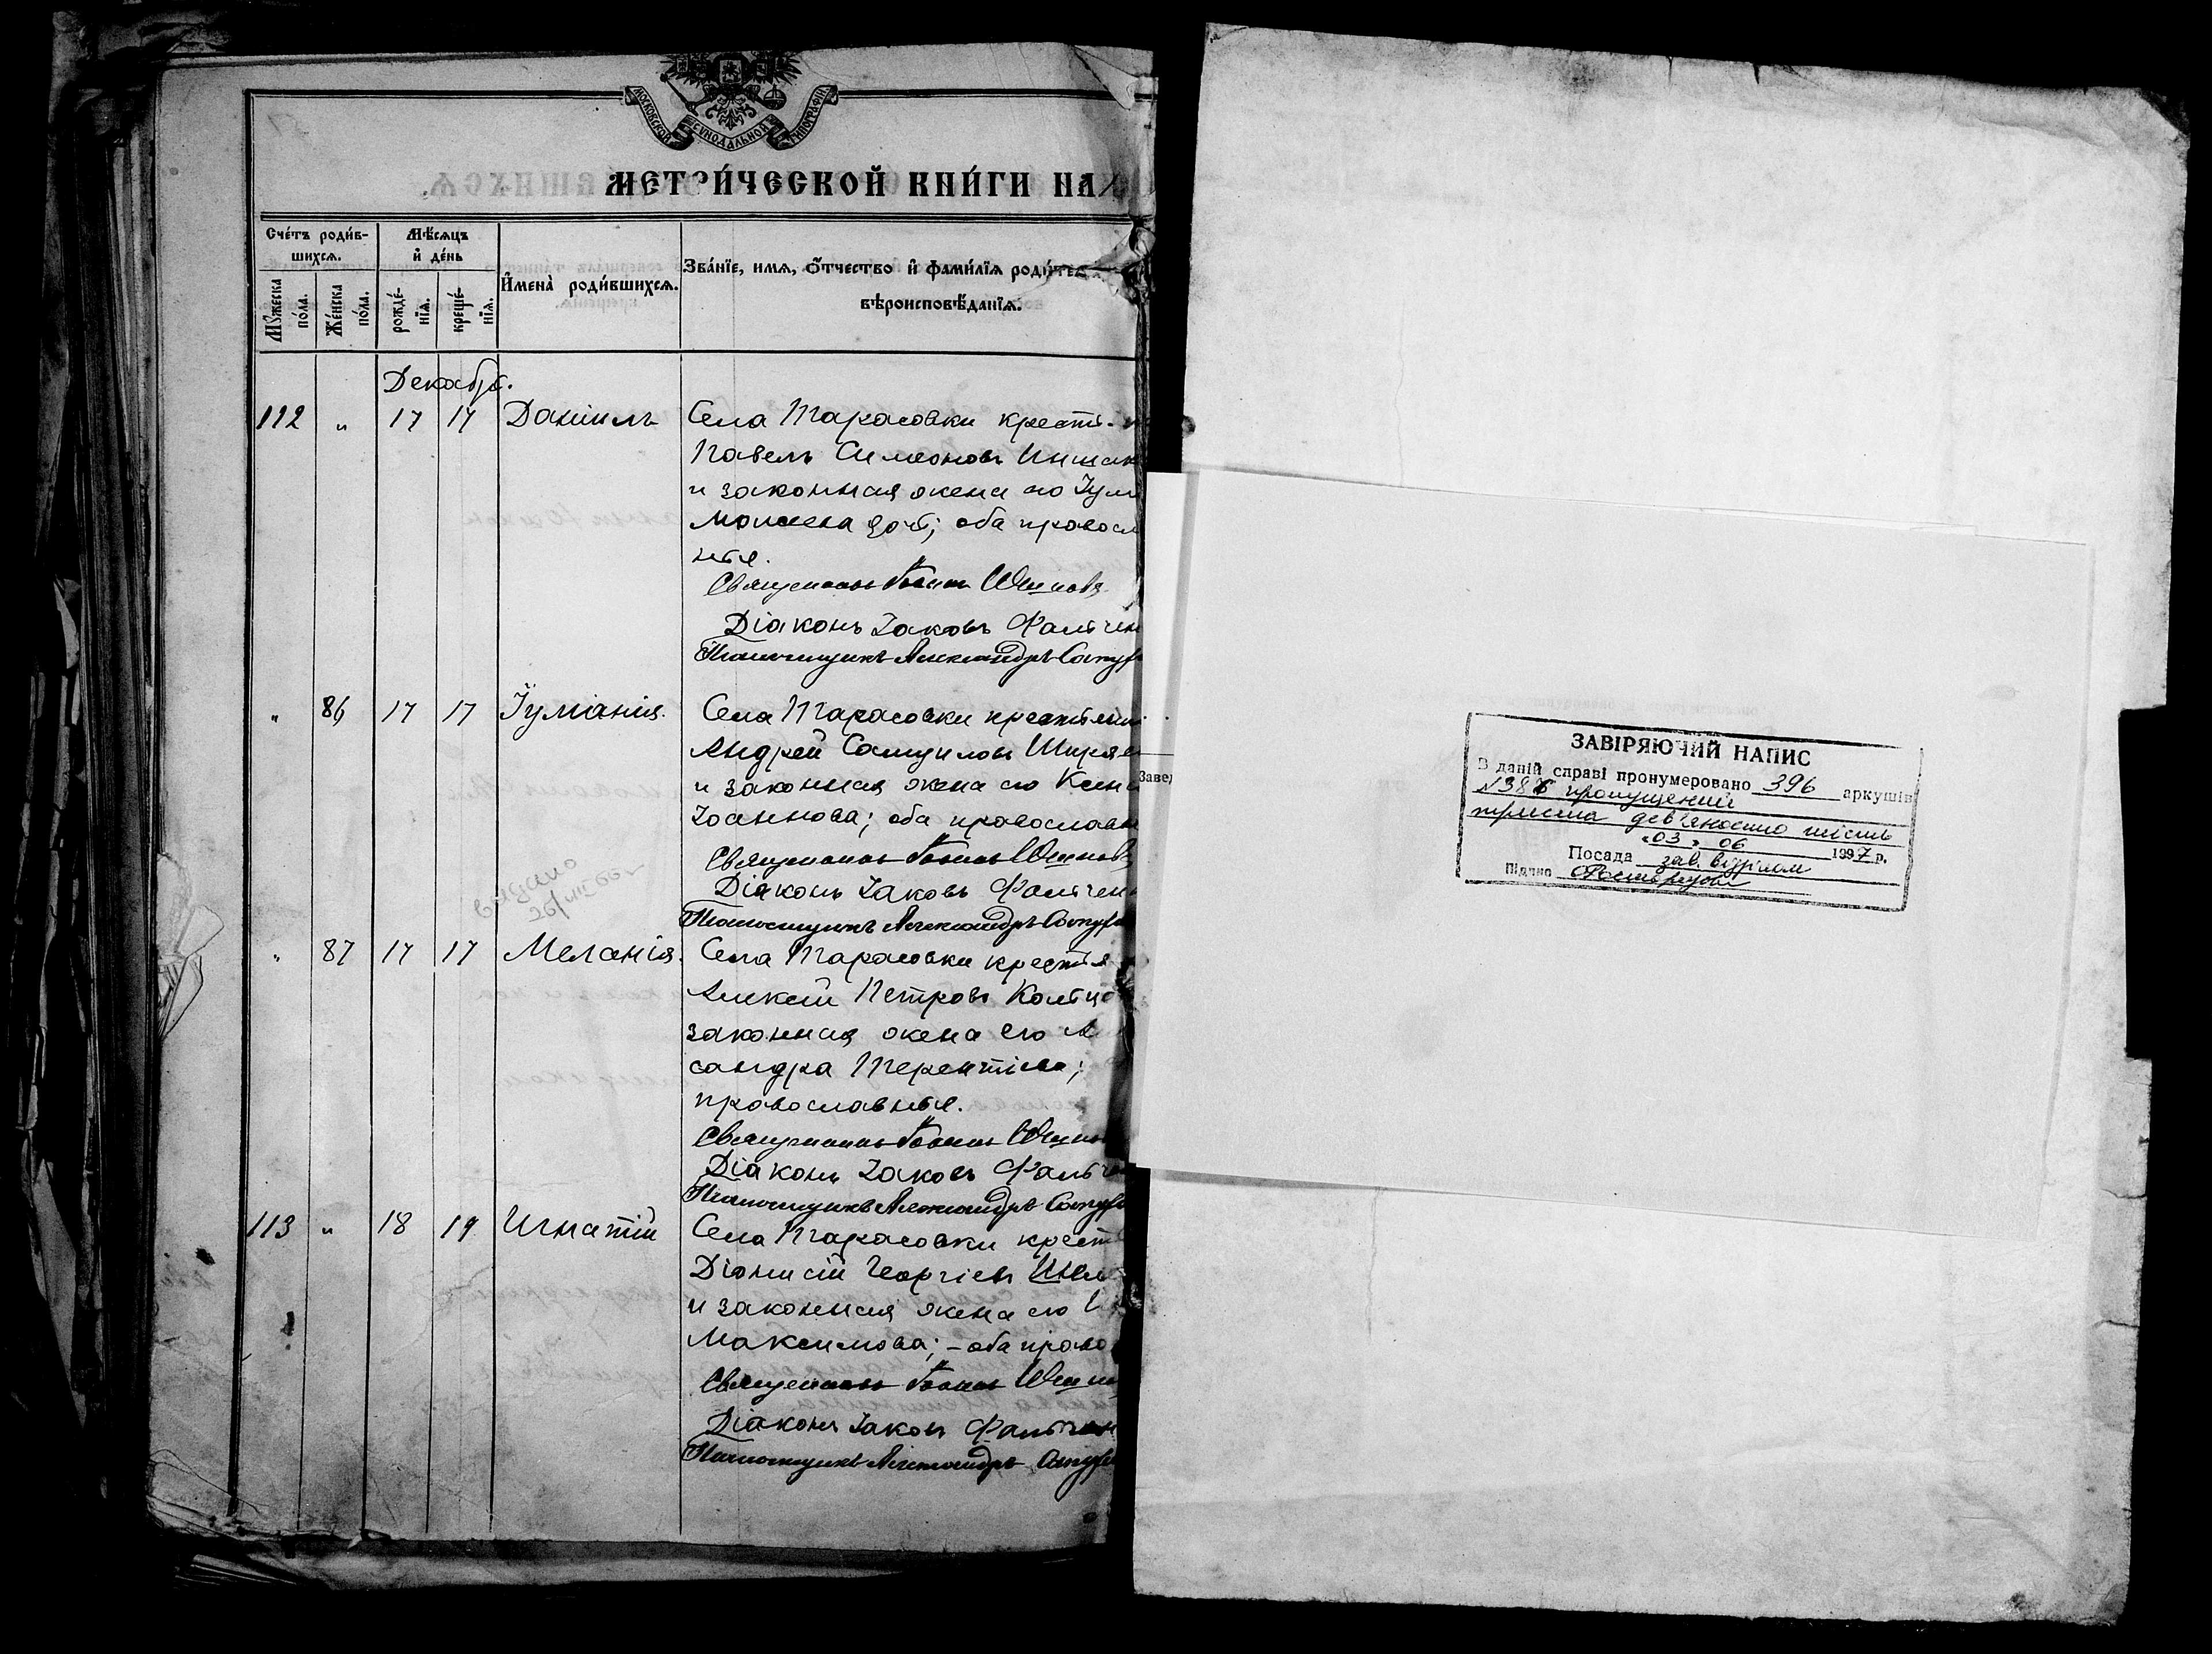 МОСКОВСКОЙ СУНОДАЛЬНОЙ ТИПОГРАФІИ
МЕТРИ́ЧЕСКОЙ КНИ́ГИ НА
Сче́тъ роди́в-
шихсѧ.
Мѣ́сяцъ
и҆ де́нь
И҆мена̀ роди́вшихсѧ.
Зва́нїе, имѧ, ѻ҆́тчество и҆ фами́лїѧ роди́тел
вѣроисповѣ́данїѧ.
Мꙋ́жеска
по́ла.
Же́нска
по́ла.
рожде́-
нїѧ.
креще́-
нїѧ.
Декабрь.
112 " 17 17 Даніилъ Села Тарасовки крестья-
Павелъ Симеоновъ
и законная жена его Іули
Моисеева дочь; оба правосл
ные.
Священникъ
Діаконъ Іаковъ Фальчен
Псаломщикъ Александръ
" 86 17 17 Іуліанія. Села Тарасовки крестьянин
Андрей Самуиловъ Ширяе
и законная жена его Ксен
Іоаннова; оба православн
Священникъ
Діаконъ Іаковъ Фальчен
Псаломщикъ Александръ
" 87 17 17 Меланія. Села Тарасовки крестья
Алексій Петровъ Кольцо
законная жена его Ал
сандра Терентіева;
православные.
Священникъ
Діаконъ Іаковъ Фальче
Псаломщикъ Александръ
113 " 18 19 Игнатій Села Тарасовки кресть
Діонисій Георгіевъ
и законная жена его
Максимова; - оба право
Священникъ
Діаконъ Іаковъ Фальчен
Псаломщикъ Александръ
видано
Заве
ЗАВІРЯЮЧИЙ НАПИС
В даній справі пронумеровано 396 аркушів
пропущений
триста дев'яносто шість
"03" 06 1997 р.
Посада зав. відділом
Підпис